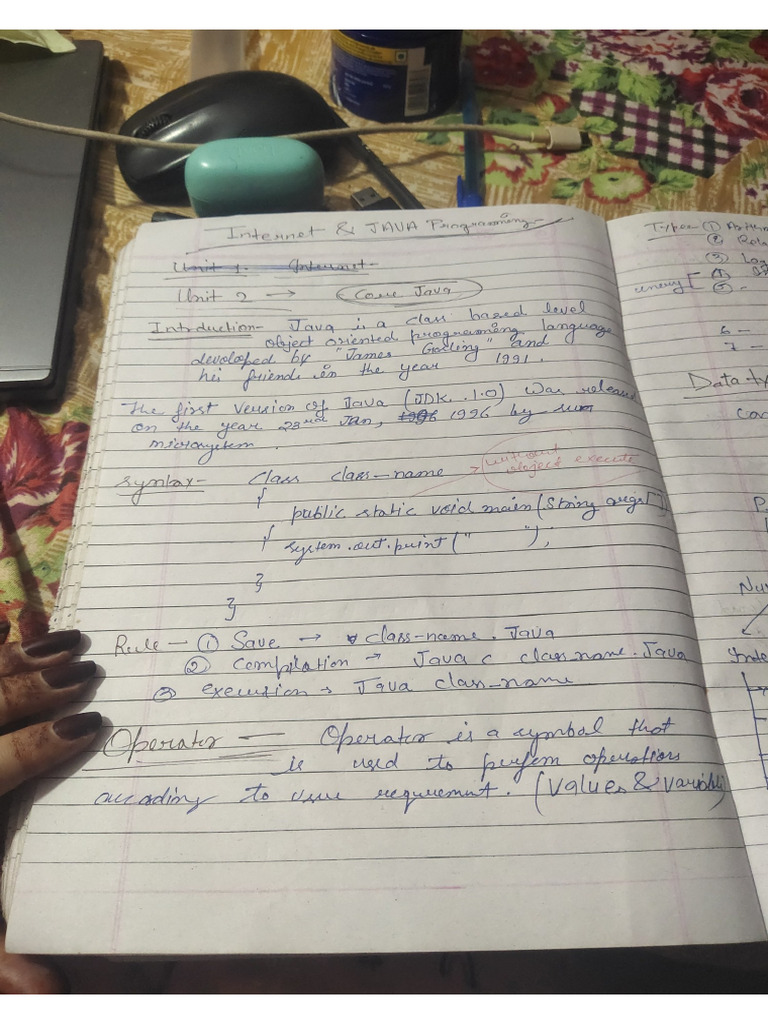 Internet & JAVA Programming
Unit 1. Internet
Unit 2 → Core Java
Introduction- Java is a class based level
object oriented programming language
devoloped by "James Gosling" and
his friends in the year 1991.
The first version of Java (JDK.1.0) was released
on the year 23rd Jan, 1996 1996 by sun
microsystem.
Syntax- Class class-name
without
object execute
{
public static void main(String args[])
{
system.out.print(" ");
}
}
Rule - ① Save → class-name.Java
② Compilation → Java c class name.Java
③ execusion → Java class-name
Operator - Operator is a symbol that
is used to perfom operations
according to user requirement. (values & variable)
Types ①
②
③
④
⑤ -
unery
6 -
7 -